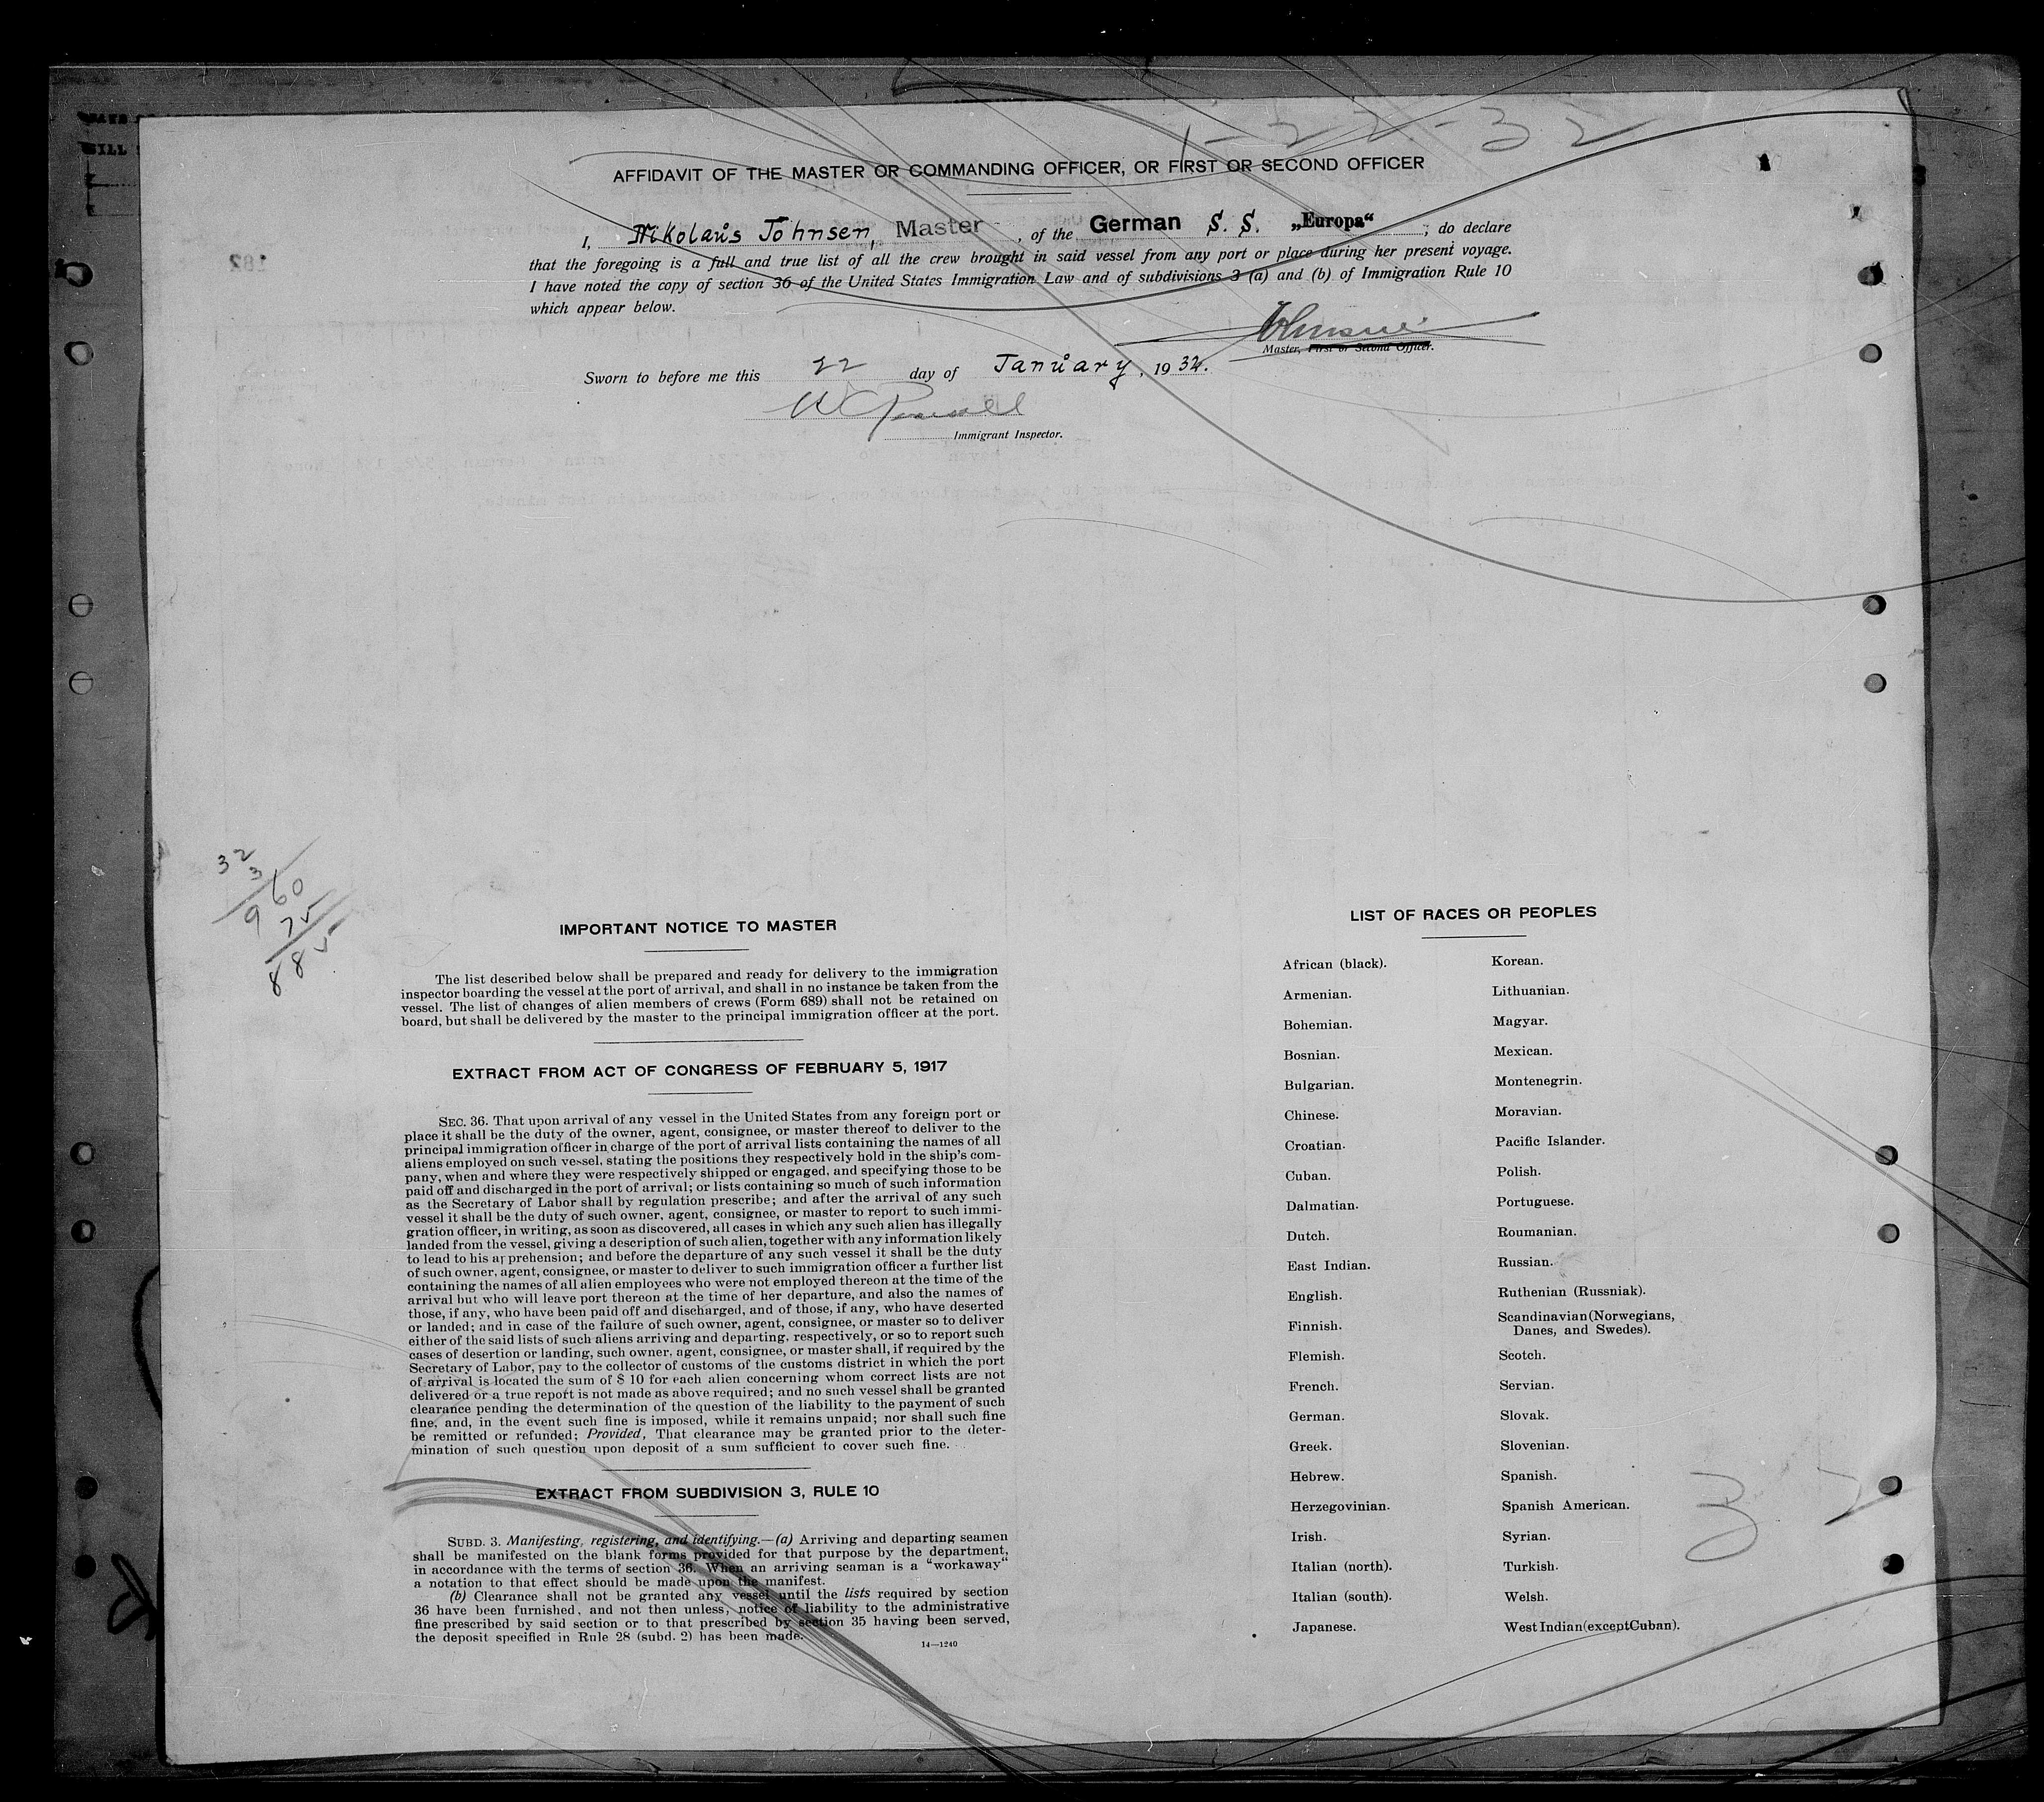 1-22-32
AFFIDAVIT OF THE MASTER OR COMMANDING OFFICER, OR FIRST OR SECOND OFFICER
I, Nikolaus Johnsen, Master, of the German S. S. „Europa“, do declare
that the foregoing is a full and true list of all the crew brought in said vessel from any port or place during her present voyage.
I have noted the copy of section 36 of the United States Immigration Law and of subdivisions 3 (a) and (b) of Immigration Rule 10
which appear below.
Master, First or Second Officer.
Sworn to before me this 22 day of January, 1932.
Immigrant Inspector.
32
3
960
25
885
IMPORTANT NOTICE TO MASTER
The list described below shall be prepared and ready for delivery to the immigration
inspector boarding the vessel at the port of arrival, and shall in no instance be taken from the
vessel. The list of changes of alien members of crews (Form 689) shall not be retained on
board, but shall be delivered by the master to the principal immigration officer at the port.
EXTRACT FROM ACT OF CONGRESS OF FEBRUARY 5, 1917
SEC. 36. That upon arrival of any vessel in the United States from any foreign port or
place it shall be the duty of the owner, agent, consignee, or master thereof to deliver to the
principal immigration officer in charge of the port of arrival lists containing the names of all
aliens employed on such vessel, stating the positions they respectively hold in the ship's com-
pany, when and where they were respectively shipped or engaged, and specifying those to be
paid off and discharged in the port of arrival; or lists containing so much of such information
as the Secretary of Labor shall by regulation prescribe; and after the arrival of any such
vessel it shall be the duty of such owner, agent, consignee, or master to report to such immi-
gration officer, in writing, as soon as discovered, all cases in which any such alien has illegally
landed from the vessel, giving a description of such alien, together with any information likely
to lead to his apprehension; and before the departure of any such vessel it shall be the duty
of such owner, agent, consignee, or master to deliver to such immigration officer a further list
containing the names of all alien employees who were not employed thereon at the time of the
arrival but who will leave port thereon at the time of her departure, and also the names of
those, if any, who have been paid off and discharged, and of those, if any, who have deserted
or landed; and in case of the failure of such owner, agent, consignee, or master so to deliver
either of the said lists of such aliens arriving and departing, respectively, or so to report such
cases of desertion or landing, such owner, agent, consignee, or master shall, if required by the
Secretary of Labor, pay to the collector of customs of the customs district in which the port
of arrival is located the sum of $ 10 for each alien concerning whom correct lists are not
delivered or a true report is not made as above required; and no such vessel shall be granted
clearance pending the determination of the question of the liability to the payment of such
fine, and, in the event such fine is imposed, while it remains unpaid; nor shall such fine
be remitted or refunded; Provided, That clearance may be granted prior to the deter-
mination of such question upon deposit of a sum sufficient to cover such fine.
EXTRACT FROM SUBDIVISION 3, RULE 10
SUBD. 3. Manifesting, registering, and identifying.—(a) Arriving and departing seamen
shall be manifested on the blank forms provided for that purpose by the department,
in accordance with the terms of section 36. When an arriving seaman is a “workaway“
a notation to that effect should be made upon the manifest.
(b) Clearance shall not be granted any vessel until the lists required by section
36 have been furnished, and not then unless, notice of liability to the administrative
fine prescribed by said section or to that prescribed by section 35 having been served,
the deposit specified in Rule 28 (subd. 2) has been made.
14—1240
LIST OF RACES OR PEOPLES
African (black).
Armenian.
Bohemian.
Bosnian.
Bulgarian.
Chinese.
Croatian.
Cuban.
Dalmatian.
Dutch.
East Indian.
English.
Finnish.
Flemish.
French.
German.
Greek.
Hebrew.
Herzegovinian.
Irish.
Italian (north).
Italian (south).
Japanese.
Korean.
Lithuanian.
Magyar.
Mexican.
Montenegrin.
Moravian.
Pacific Islander.
Polish.
Portuguese.
Roumanian.
Russian.
Ruthenian (Russniak).
Scandinavian (Norwegians,
Danes, and Swedes).
Scotch.
Servian.
Slovak.
Slovenian.
Spanish.
Spanish American.
Syrian.
Turkish.
Welsh.
West Indian (except Cuban).